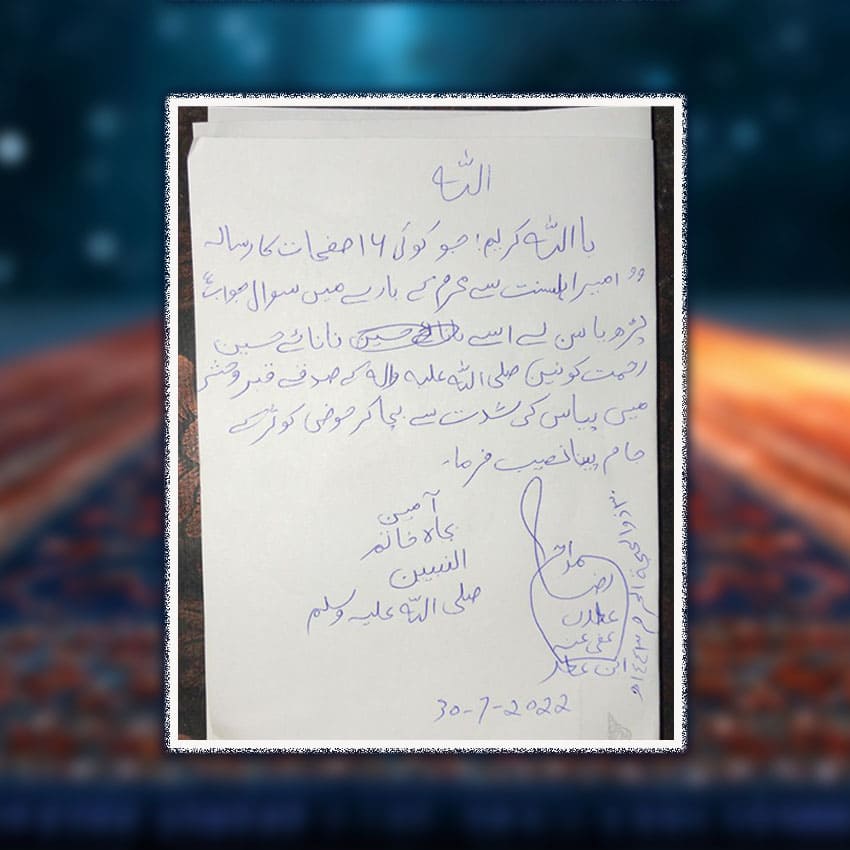 اللہ
یا اللہ کریم! جو کوئی ۱۶ صفحات کا رسالہ
”امیر اہلسنت سے محرم کے بارے میں سوال جواب“
پڑھ یا سن لے اسے نانائے حسین
رحمت کونین صلی اللہ علیہ والہ کے صدقے قبر و حشر
میں پیاس کی شدت سے بچا کر حوض کوثر سے
جام پینا نصیب فرما۔
آمین
بجاہ خاتم
النبیین
صلی اللہ علیہ وسلم
رضا
عطاری
عفی عنہ
ابن عطار
۱۴۴۳ھ
30-7-2022